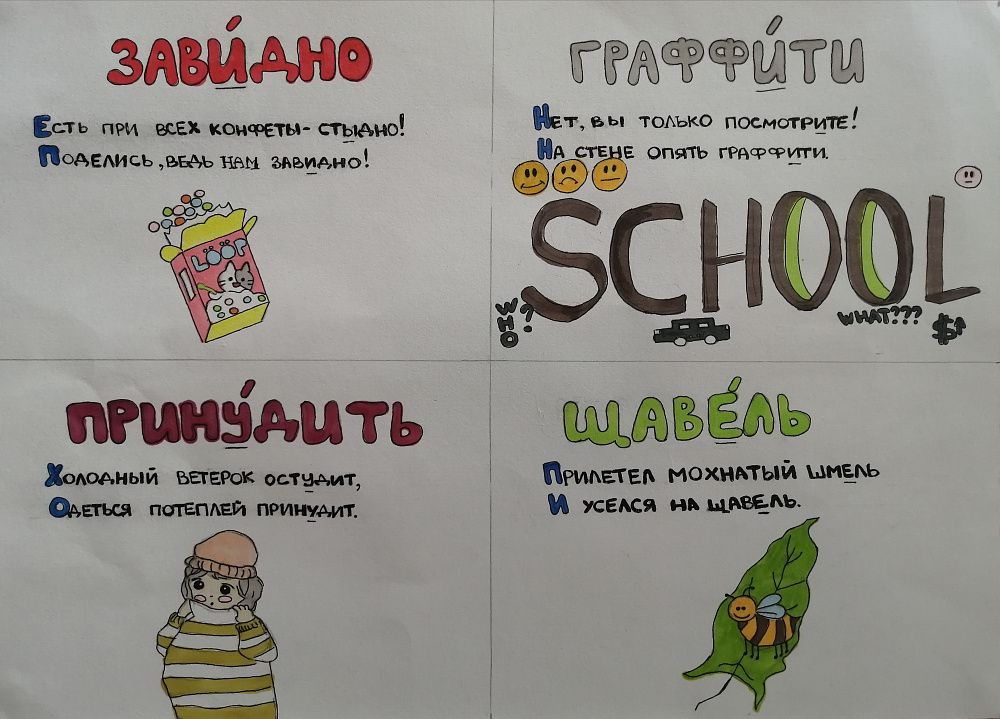 ЗАВИ́ДНО
ЕСТЬ ПРИ ВСЕХ КОНФЕТЫ - СТЫДНО!
ПОДЕЛИСЬ, ВЕДЬ НАМ ЗАВИДНО!
LÖÖP
ГРАФФИ́ТИ
НЕТ, ВЫ ТОЛЬКО ПОСМОТРИТЕ!
НА СТЕНЕ ОПЯТЬ ГРАФФИТИ.
SCHOOL
WHO?
WHAT???
$
ПРИНУ́ДИТЬ
ХОЛОДНЫЙ ВЕТЕРОК ОСТУДИТ,
ОДЕТЬСЯ ПОТЕПЛЕЙ ПРИНУДИТ.
ЩАВЕ́ЛЬ
ПРИЛЕТЕЛ МОХНАТЫЙ ШМЕЛЬ
И УСЕЛСЯ НА ЩАВЕЛЬ.